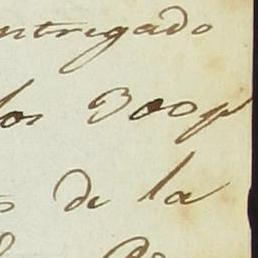 ntrigado
los 300 p
de la